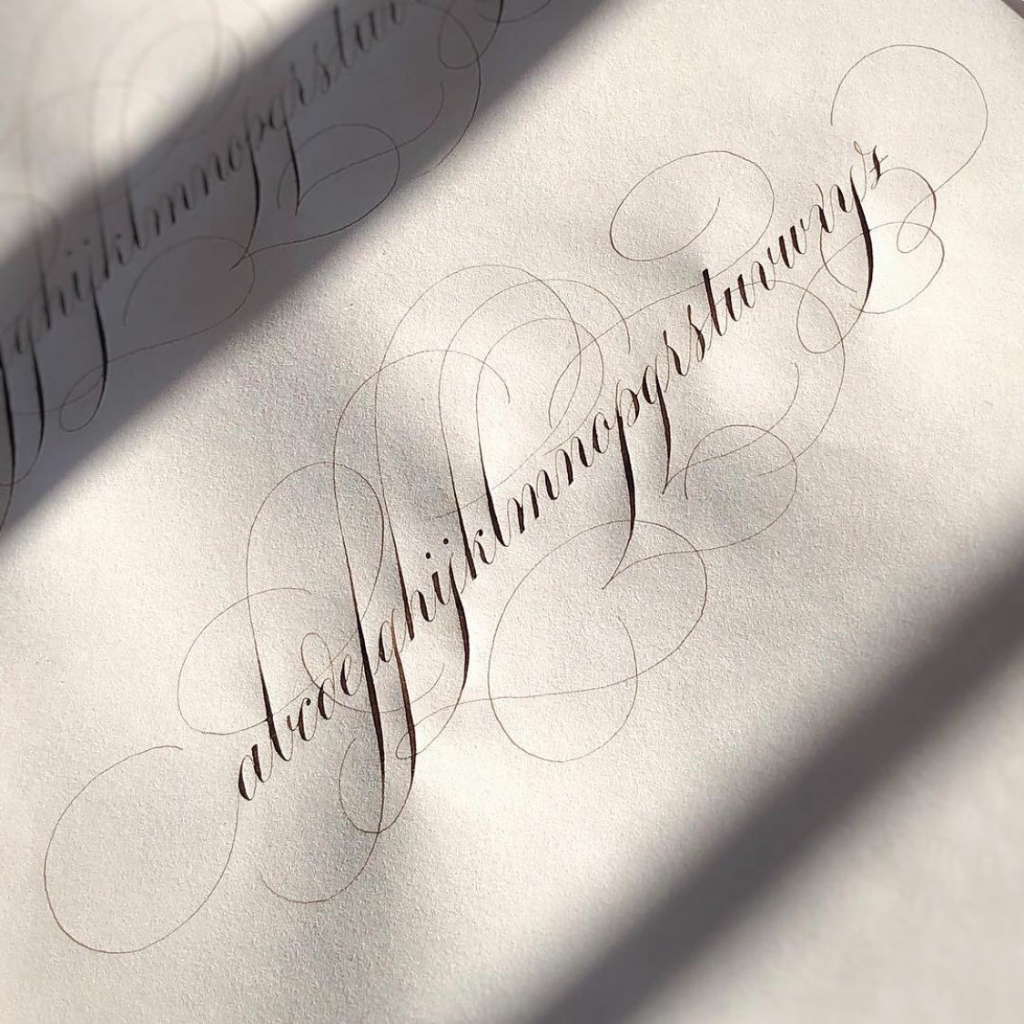 fghijklmnopqrstuv
abcdefghijklmnopqrstuvwxyz